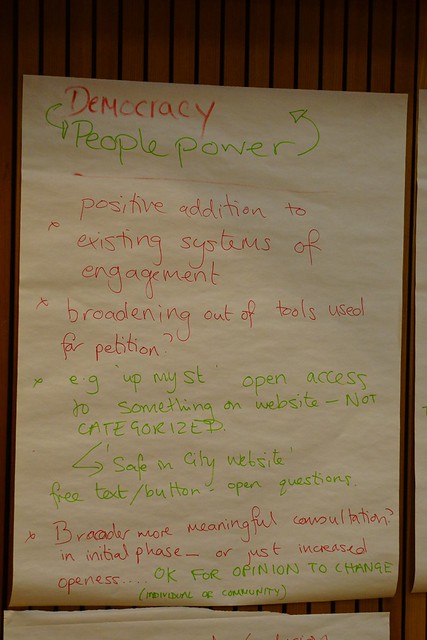 DEMOCRACY
People power
positive addition to
* existing systems of
engagement
* broadening out of tools used
for petition?
* e.g 'up my st' open access
to something on website - NOT
CATEGORIZED.
'Safe in City website'
free text/button - open questions.
* Broader more meaningful consultation?
in initial phase - or just increased
openess.... OK FOR OPINION TO CHANGE
(INDIVIDUAL OR COMMUNITY)